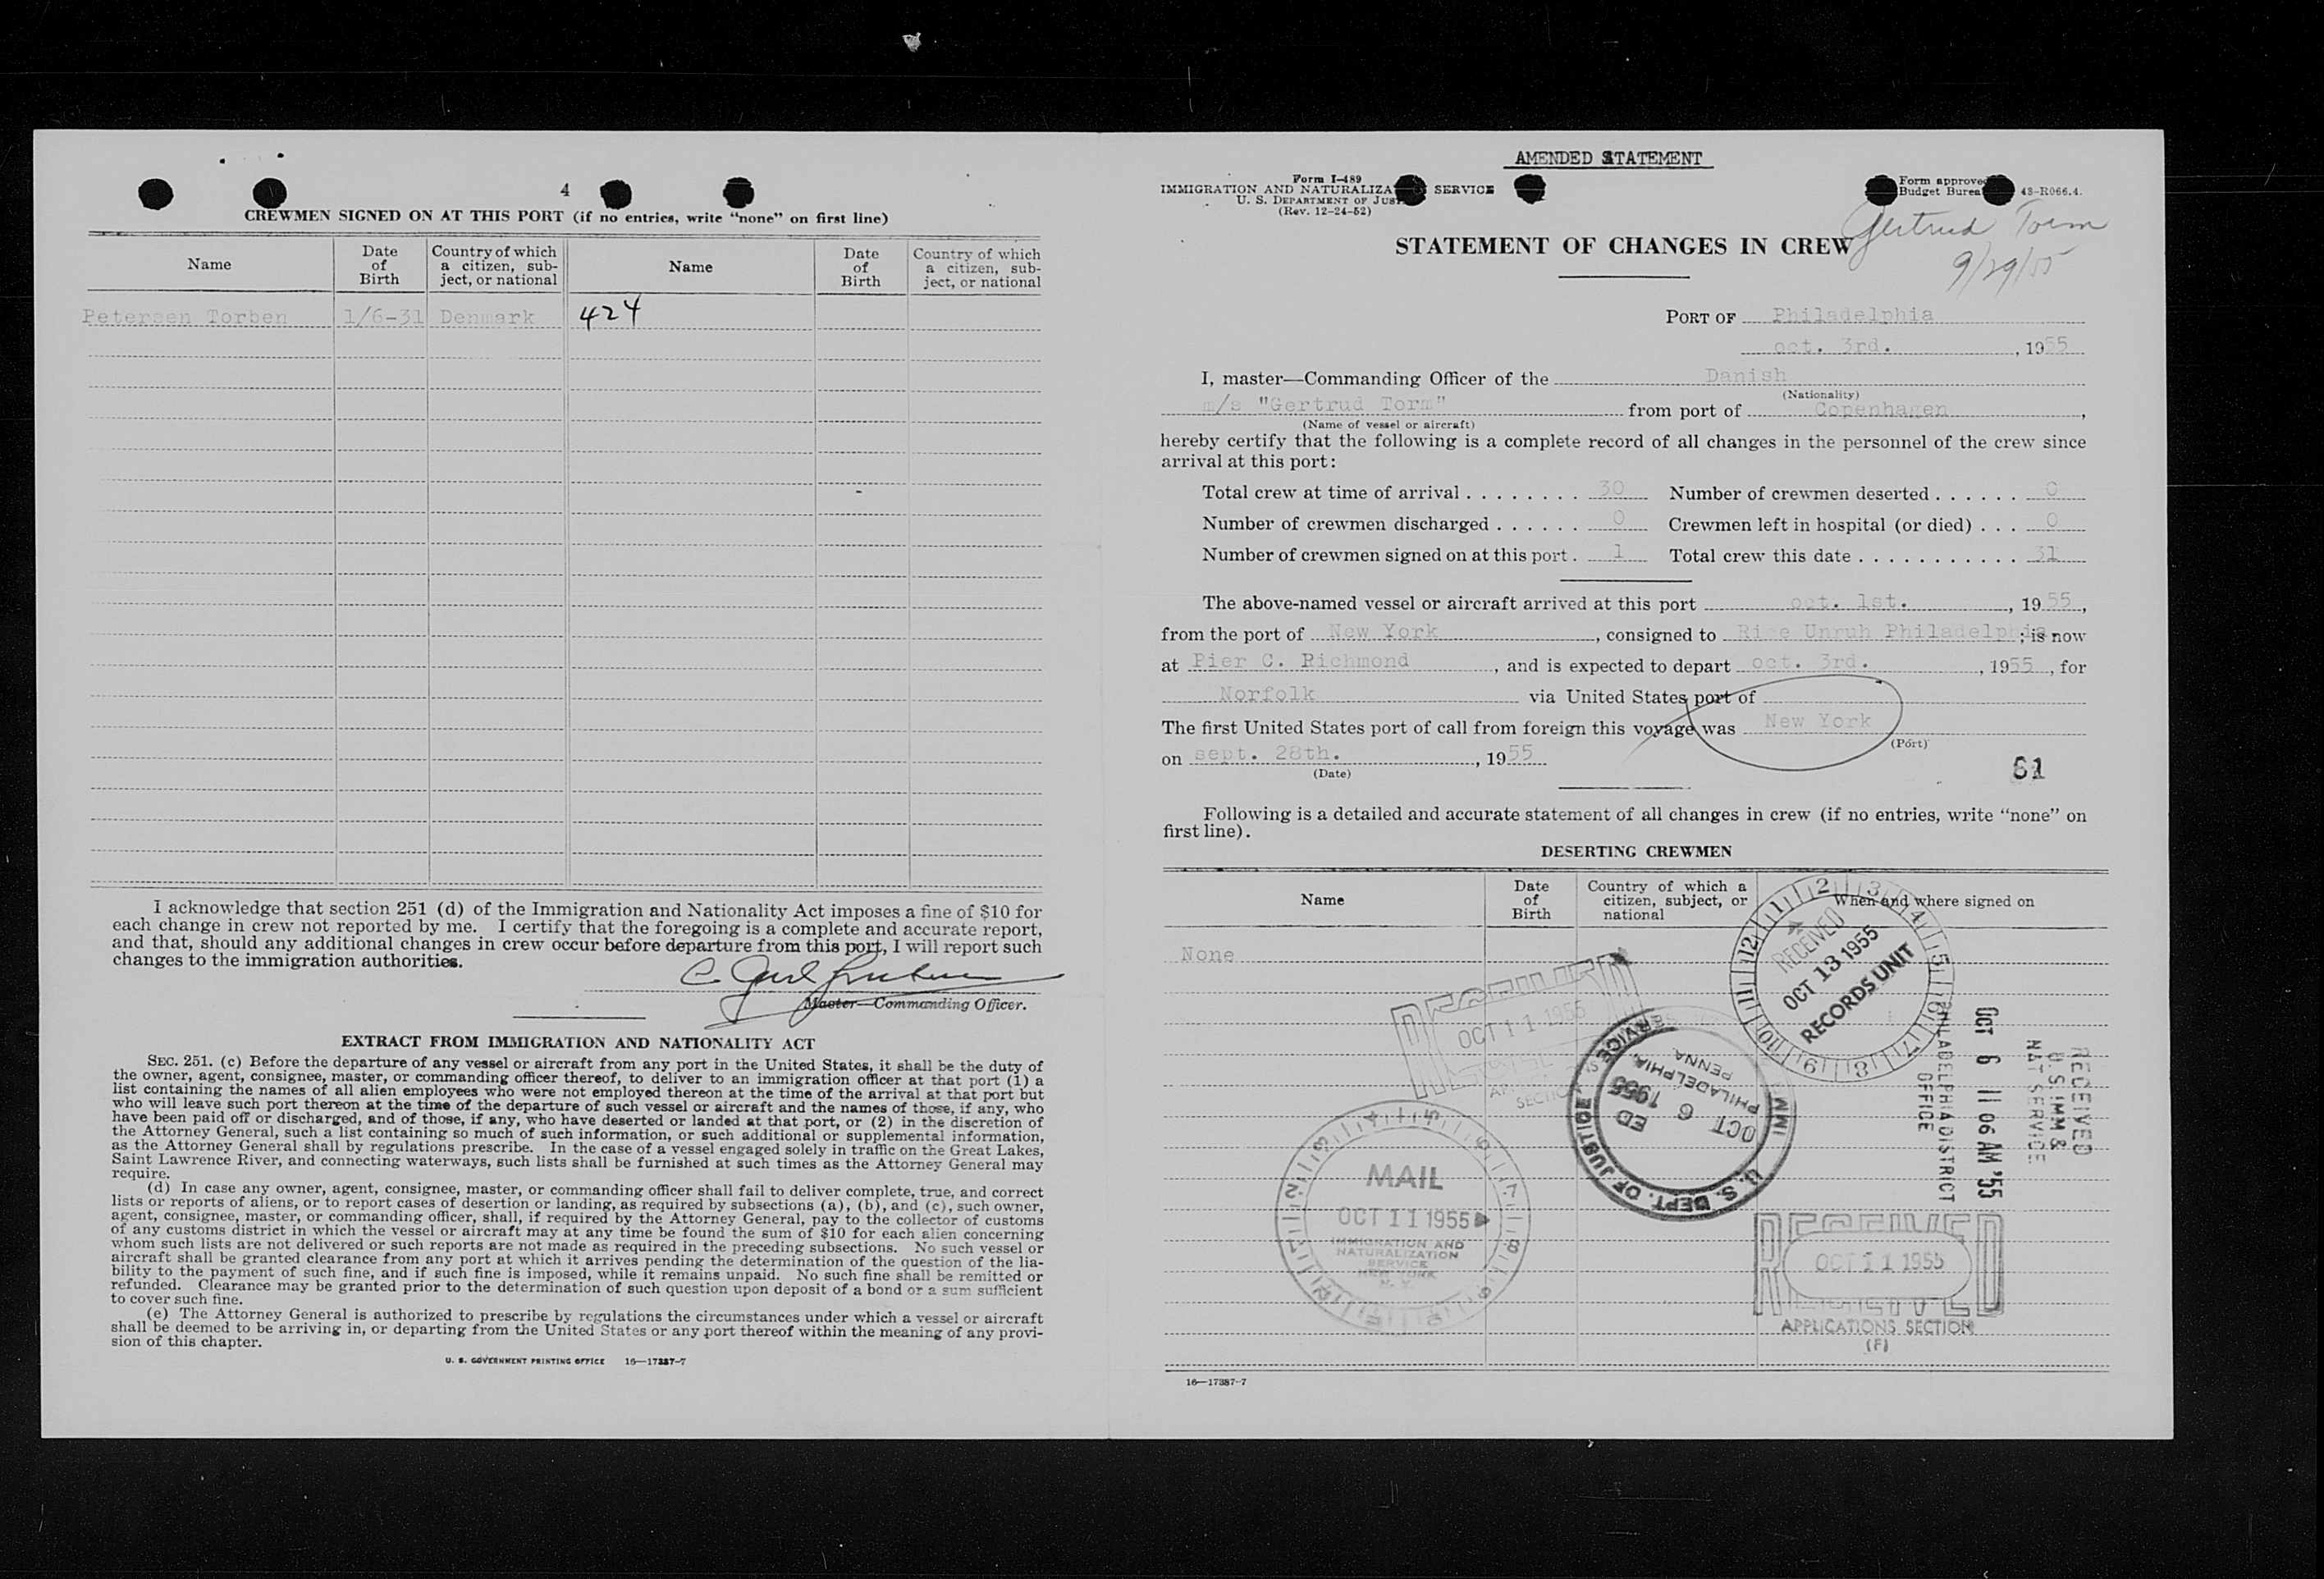 4
CREWMEN SIGNED ON AT THIS PORT (if no entries, write "none" on first line)
Name Date of Birth Country of which a citizen, subject, or national Name Date of Birth Country of which a citizen, subject, or national
Petersen Torben 1/6-31 Denmark 424
I acknowledge that section 251 (d) of the Immigration and Nationality Act imposes a fine of $10 for
each change in crew not reported by me. I certify that the foregoing is a complete and accurate report,
and that, should any additional changes in crew occur before departure from this port, I will report such
changes to the immigration authorities.
Master—Commanding Officer.
EXTRACT FROM IMMIGRATION AND NATIONALITY ACT
SEC. 251. (c) Before the departure of any vessel or aircraft from any port in the United States, it shall be the duty of
the owner, agent, consignee, master, or commanding officer thereof, to deliver to an immigration officer at that port (1) a
list containing the names of all alien employees who were not employed thereon at the time of the arrival at that port but
who will leave such port thereon at the time of the departure of such vessel or aircraft and the names of those, if any, who
have been paid off or discharged, and of those, if any, who have deserted or landed at that port, or (2) in the discretion of
the Attorney General, such a list containing so much of such information, or such additional or supplemental information,
as the Attorney General shall by regulations prescribe. In the case of a vessel engaged solely in traffic on the Great Lakes,
Saint Lawrence River, and connecting waterways, such lists shall be furnished at such times as the Attorney General may
require.
(d) In case any owner, agent, consignee, master, or commanding officer shall fail to deliver complete, true, and correct
lists or reports of aliens, or to report cases of desertion or landing, as required by subsections (a), (b), and (c), such owner,
agent, consignee, master, or commanding officer, shall, if required by the Attorney General, pay to the collector of customs
of any customs district in which the vessel or aircraft may at any time be found the sum of $10 for each alien concerning
whom such lists are not delivered or such reports are not made as required in the preceding subsections. No such vessel or
aircraft shall be granted clearance from any port at which it arrives pending the determination of the question of the lia-
bility to the payment of such fine, and if such fine is imposed, while it remains unpaid. No such fine shall be remitted or
refunded. Clearance may be granted prior to the determination of such question upon deposit of a bond or a sum sufficient
to cover such fine.
(e) The Attorney General is authorized to prescribe by regulations the circumstances under which a vessel or aircraft
shall be deemed to be arriving in, or departing from the United States or any port thereof within the meaning of any provi-
sion of this chapter.
U. S. GOVERNMENT PRINTING OFFICE 16—17387-7
AMENDED STATEMENT
Form I-489
IMMIGRATION AND NATURALIZA SERVICE
U. S. DEPARTMENT OF JUS
(Rev. 12-24-52)
Form approve
Budget Burea 43-R066.4.
Gertrud Torm
9/29/55
STATEMENT OF CHANGES IN CREW
PORT OF Philadelphia
oct. 3rd. , 1955
I, master—Commanding Officer of the Danish
(Nationality)
m/s "Gertrud Torm" from port of Copenhagen,
(Name of vessel or aircraft)
hereby certify that the following is a complete record of all changes in the personnel of the crew since
arrival at this port:
Total crew at time of arrival . . . . . . . . 30 Number of crewmen deserted . . . . . . 0
Number of crewmen discharged . . . . . . 0 Crewmen left in hospital (or died) . . . 0
Number of crewmen signed on at this port . 1 Total crew this date . . . . . . . . . . . 31
The above-named vessel or aircraft arrived at this port oct. 1st. , 1955,
from the port of New York , consigned to Rise Unruh Philadelphia; is now
at Pier C. Richmond , and is expected to depart oct. 3rd. , 1955, for
Norfolk via United States port of
The first United States port of call from foreign this voyage was New York
(Port)
on sept. 28th. , 1955
(Date)
61
Following is a detailed and accurate statement of all changes in crew (if no entries, write "none" on
first line).
DESERTING CREWMEN
Name Date of Birth Country of which a citizen, subject, or national When and where signed on
None
RECEIVED
OCT 13 1955
RECORDS UNIT
RECEIVED
OCT 11 1955
U. S. DEPT. OF JUSTICE
OCT 6 1955
PHILADELPHIA, PENNA.
RECEIVED
U.S. IMM &
NAT SERVICE
OCT 6 11 06 AM '55
PHILADELPHIA DISTRICT
OFFICE
MAIL
OCT 11 1955
IMMIGRATION AND
NATURALIZATION
SERVICE
NEW YORK
N. Y.
RECEIVED
OCT 11 1955
APPLICATIONS SECTION
(F)
16—17387-7